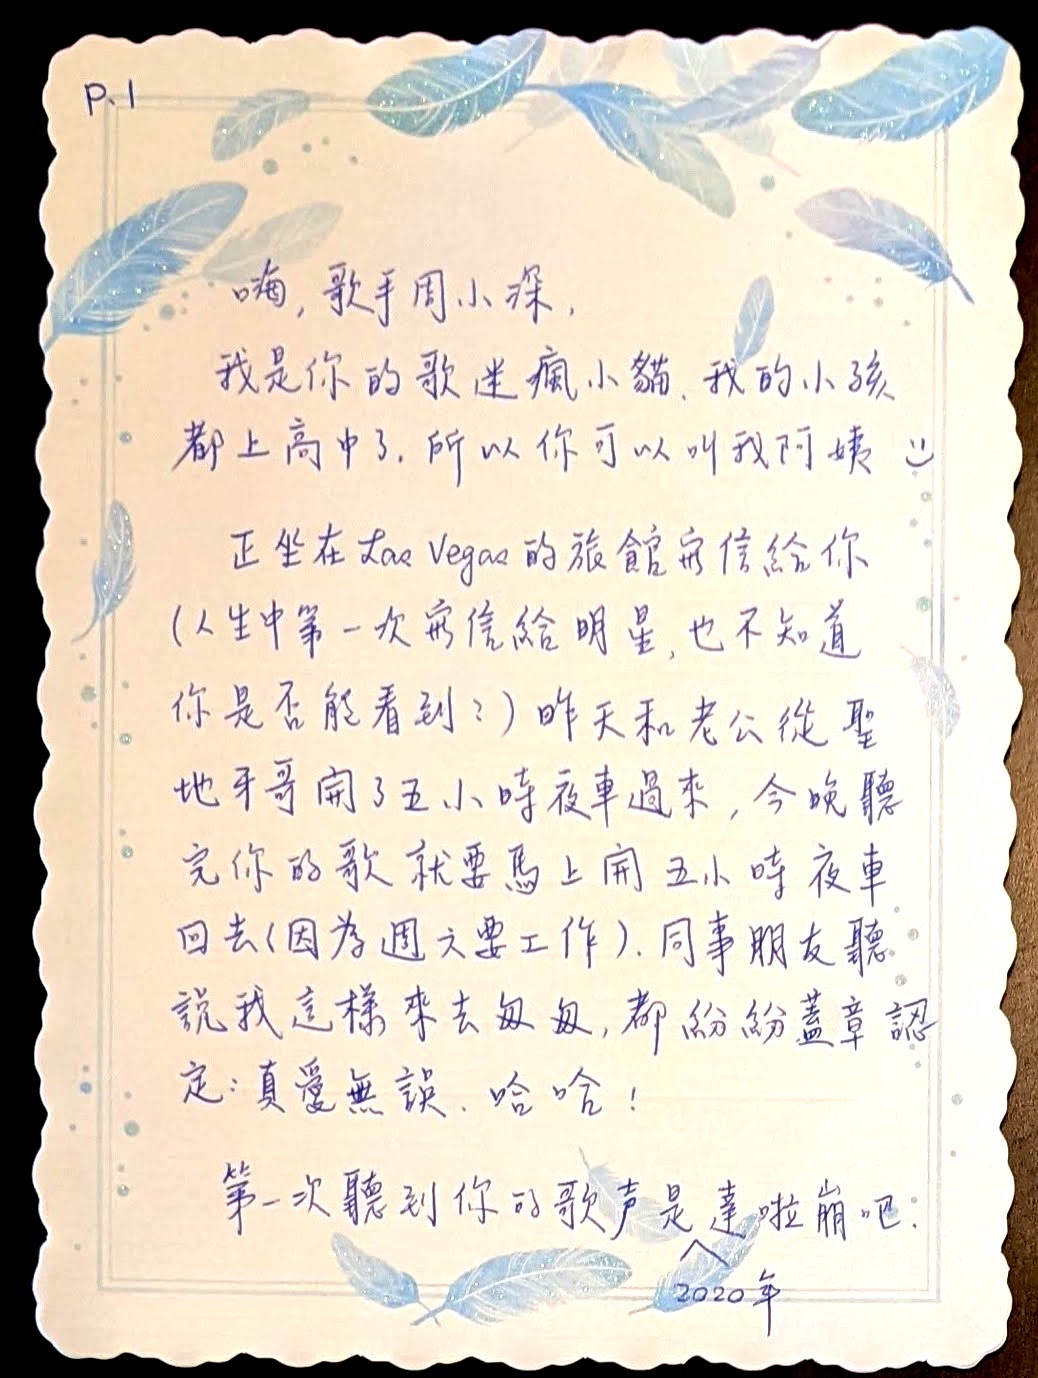 P.1
嗨, 歌手周小深,
我是你的歌迷瘋小貓. 我的小孩
都上高中了. 所以你可以叫我阿姨 :)
正坐在 Las Vegas 的旅館寫信給你
(人生中第一次寫信給明星, 也不知道
你是否能看到?) 昨天和老公從聖
地牙哥開了五小時夜車過來, 今晚聽
完你的歌就要馬上開五小時夜車
回去(因為週六要工作). 同事朋友聽
說我這樣來去匆匆, 都紛紛蓋章認
定: 真愛無誤. 哈哈!
第一次聽到你的歌声是達啦崩吧.
2020年